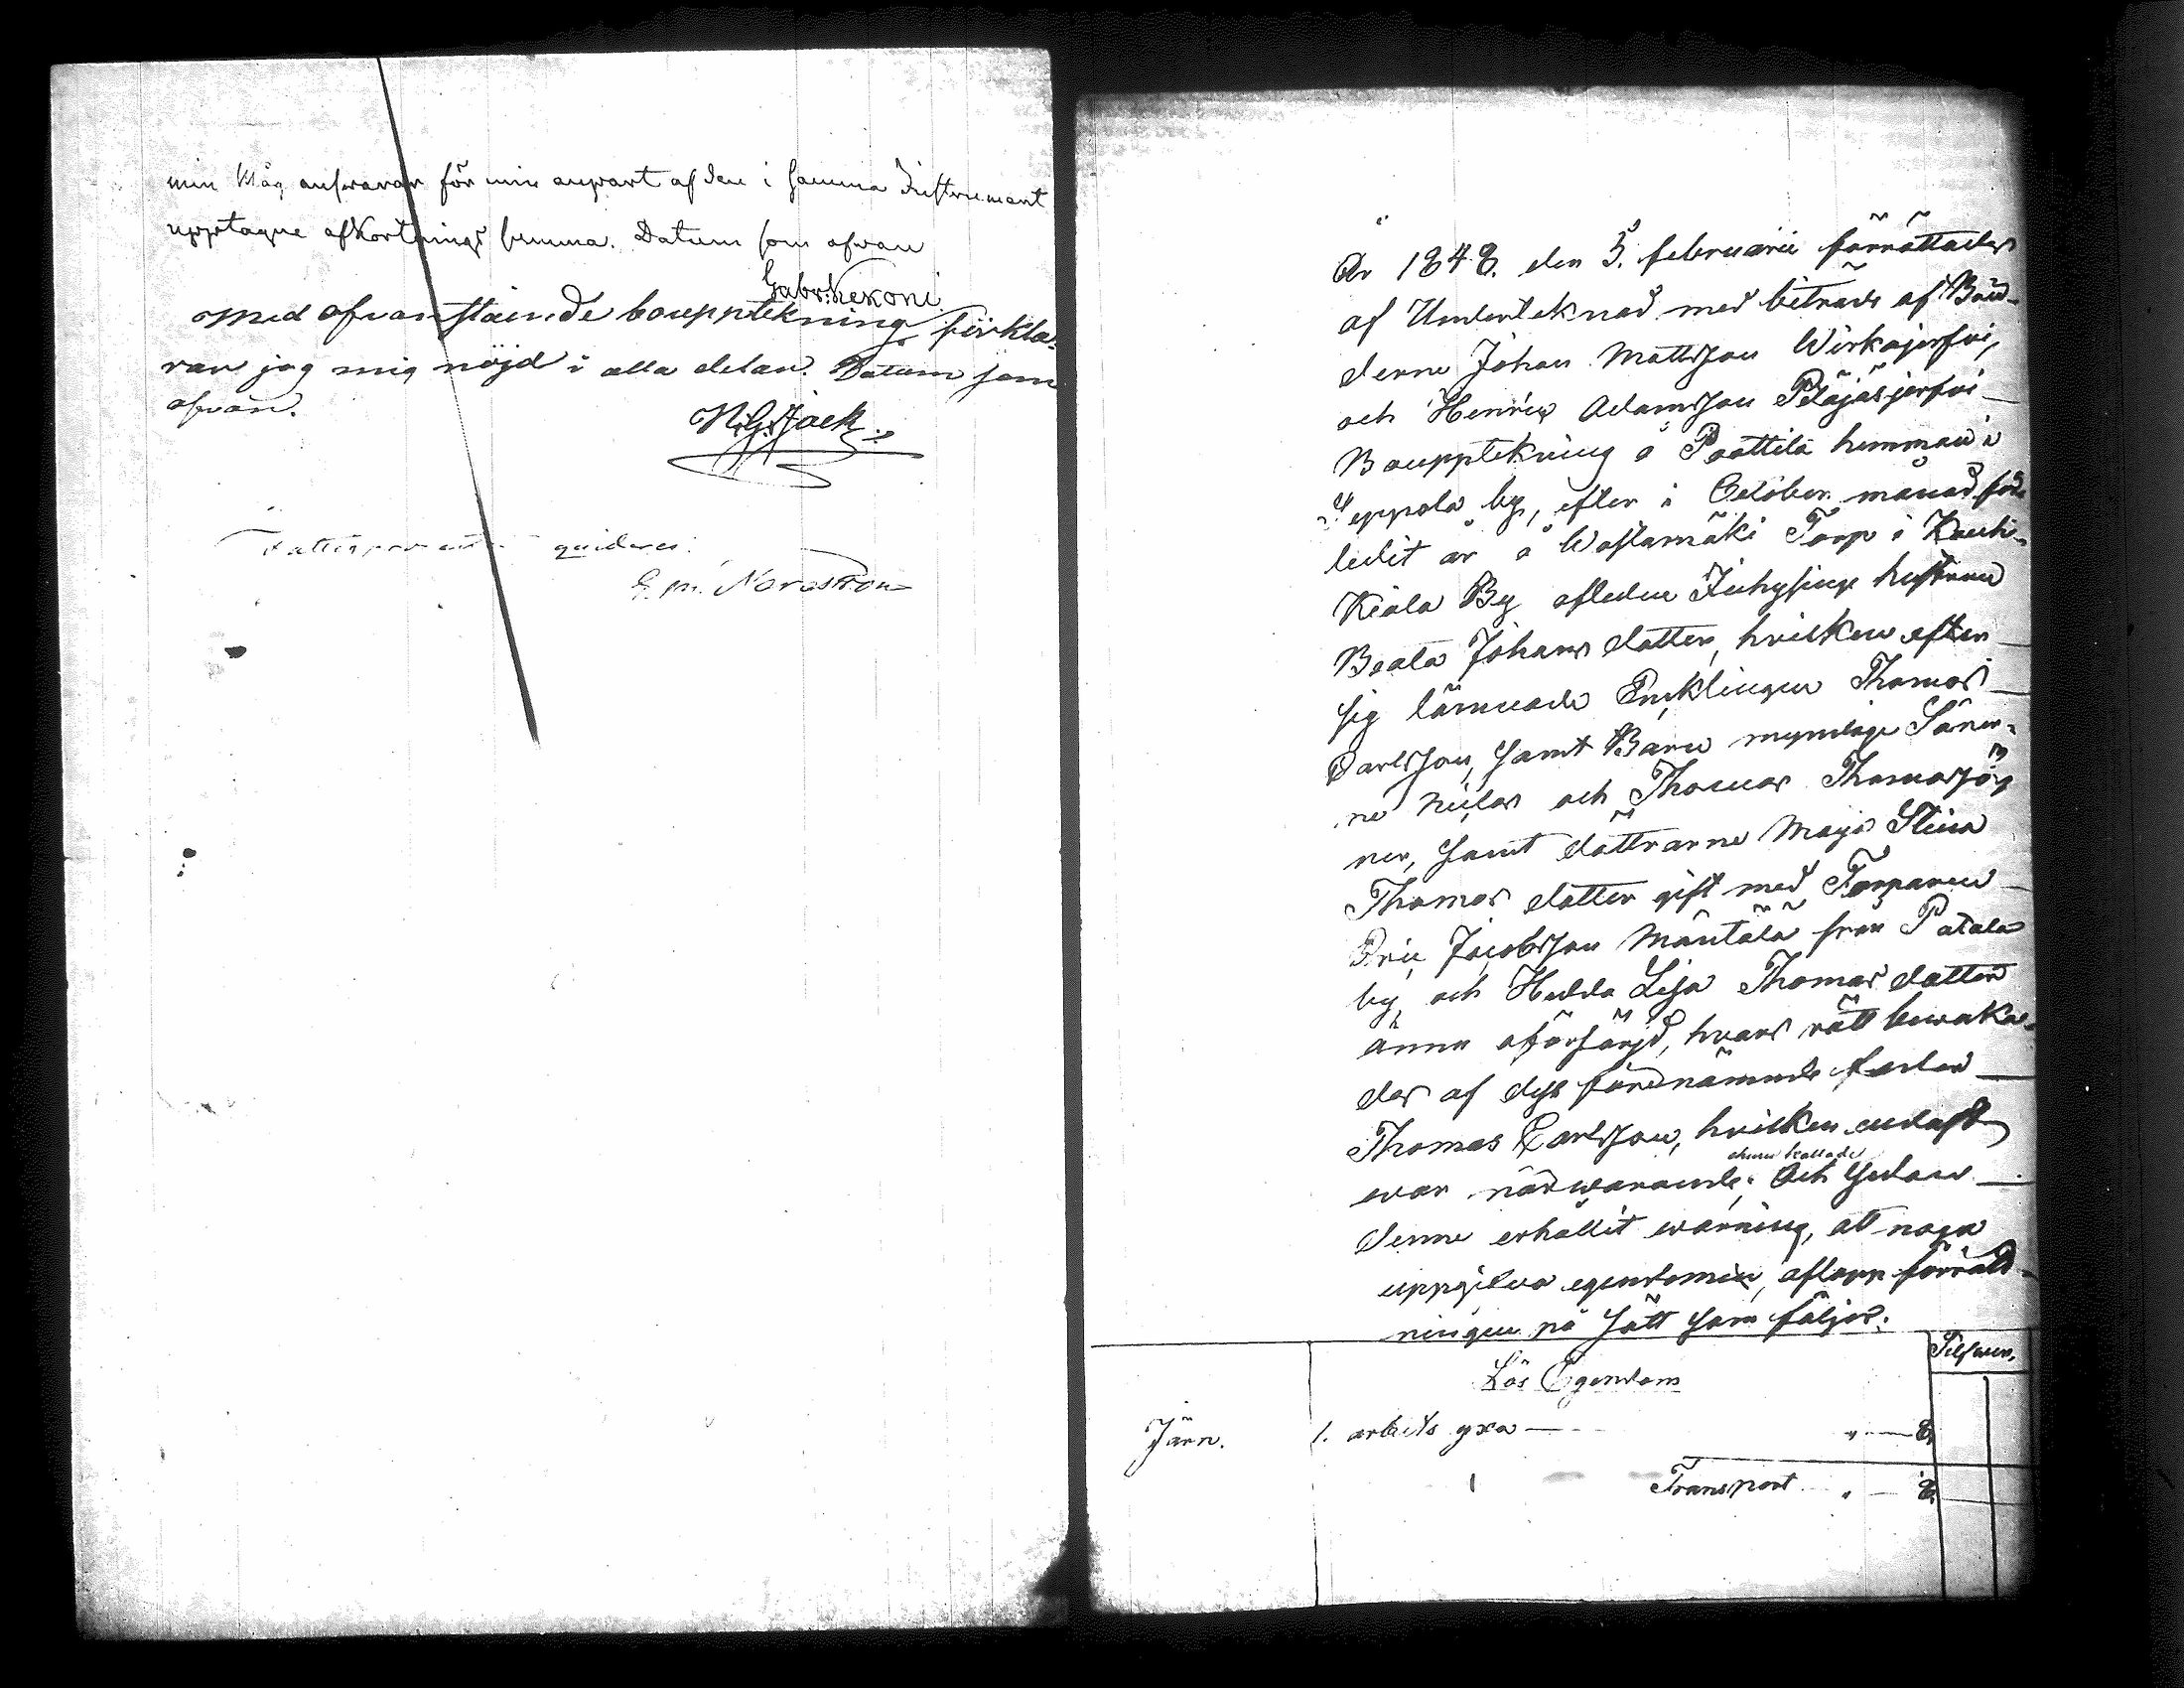 min Måg answarar för min anpart af den i samma Instrument
upptagne afkortnings summa. Datum som ofwan
Gabr: Kekoni
Med ofvanstående bouppteckning förkla-
rar jag mig nöjd i alla delar. Datum som
ofvan.
N. G. Stjack
Fattigprocenten quideras.
E. M. Nordström
År 1848. den 5. februarii förrättades
af Undertecknad med biträde af Bön-
derne Johan Mattsson Wirkajerfvi,
och Henric Adamsson Pääjäsjerfvi
Boupptekning å Paattila hemman i
Seppola by, efter i October månad sidst-
ledit år å Wastamäki Torp i Kauhi-
Kiala By afledne Inhysings hustrun
Beata Johans dotter, hvilken efter
sig lämnade Encklingen Thomas
Carlsson, samt Barn myndige Söner-
ne Niclas och Thomas Thomassö-
ner, samt döttrarne Maja Stina
Thomas dotter gift med Torparen
Eric Jacobsson Mäntälä från Patala
by, och Hedda Lisa Thomas dotter
ännu oförsörjd, hvars rätt bewaka-
des af dess förenämnde fader
Thomas Carlsson, hvilken endast
war närwarande. Och sedan
denne erhållit warning, at noga
uppgifva egendomen, aflopp förrätt-
ningen på sätt som följer:
Silfwer.
Lös Egendom
Järn. 1. arbets yxa — " — 8.
Transport " — 8.